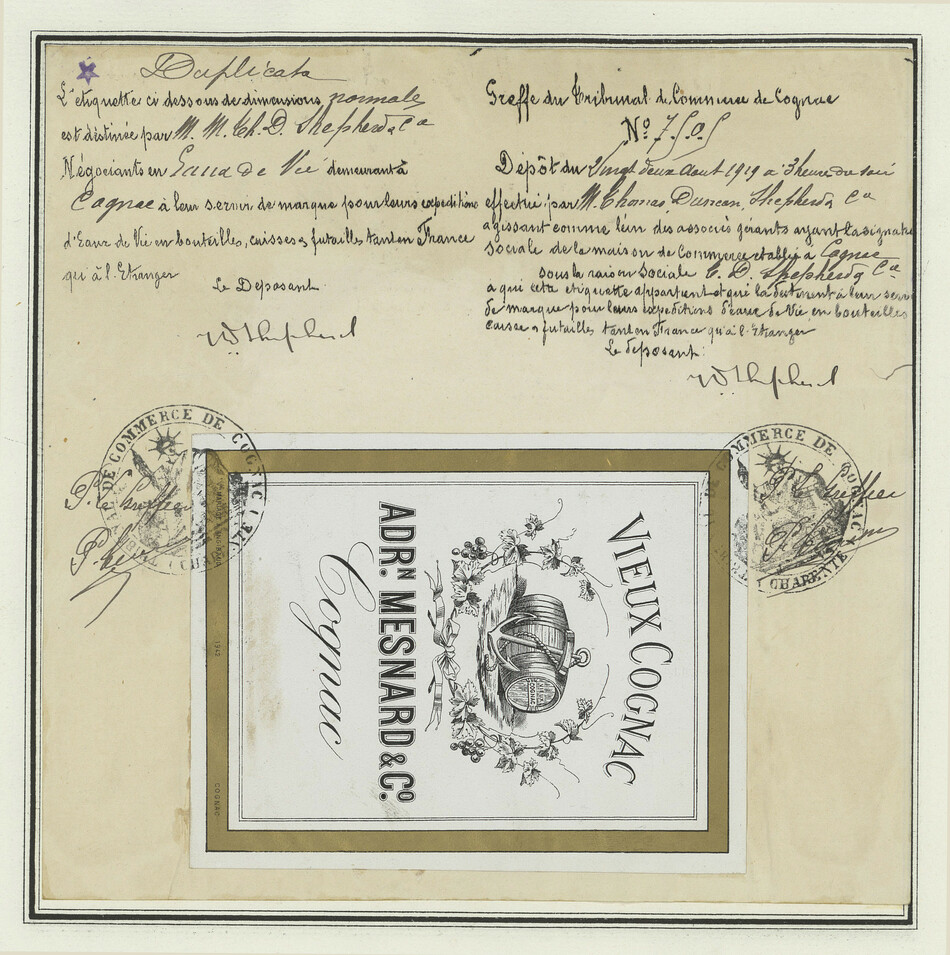 Duplicata
L'etiquette ci dessous de dimensions normale
est destinée par M. M. Th. D. Shepherd & Ca
Négociants en Eaux de Vie demeurant à
Cognac à leur servir de marque pour leurs expeditions
d'Eaux de Vie en bouteilles, caisses & futailles tant en France
qu'à l'Etranger
Le Deposant
Shepherd
Greffe du Tribunal de Commerce de Cognac
No 7505
Dépôt du Vingt deux Aout 1919 à 3 heure du soir
effectué par M. Thomas Duncan, Shepherd & Ca
agissant comme l'un des associés gérants ayant la signature
sociale de la maison de Commerce etablie à Cognac
sous la raison Sociale T. D. Shepherd & Cie
a qui cette etiquette appartient et qui la destinent à leur servir
de marque pour leurs expeditions d'eaux de Vie en bouteilles
caisses & futailles tant en France qu'à l'Etranger
Le deposant:
Shepherd
DE COMMERCE DE COGNAC
CHARENTE
Pr le Greffier
COMMERCE DE COGNAC
CHARENTE
Pr le Greffier
VIEUX COGNAC
COGNAC
ADRN. MESNARD & CO.
Cognac
1943
COGNAC